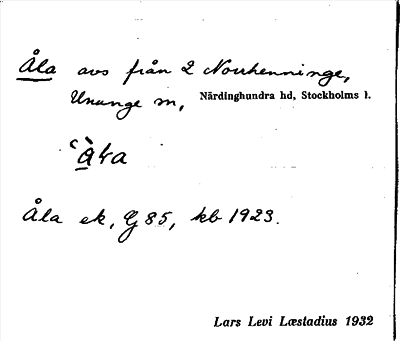 Åla avs från 2 Norrhenninge,
Ununge sn, Närdinghundra hd, Stockholms l.
Åla ek, G 85, kb 1923.
Lars Levi Læstadius 1932